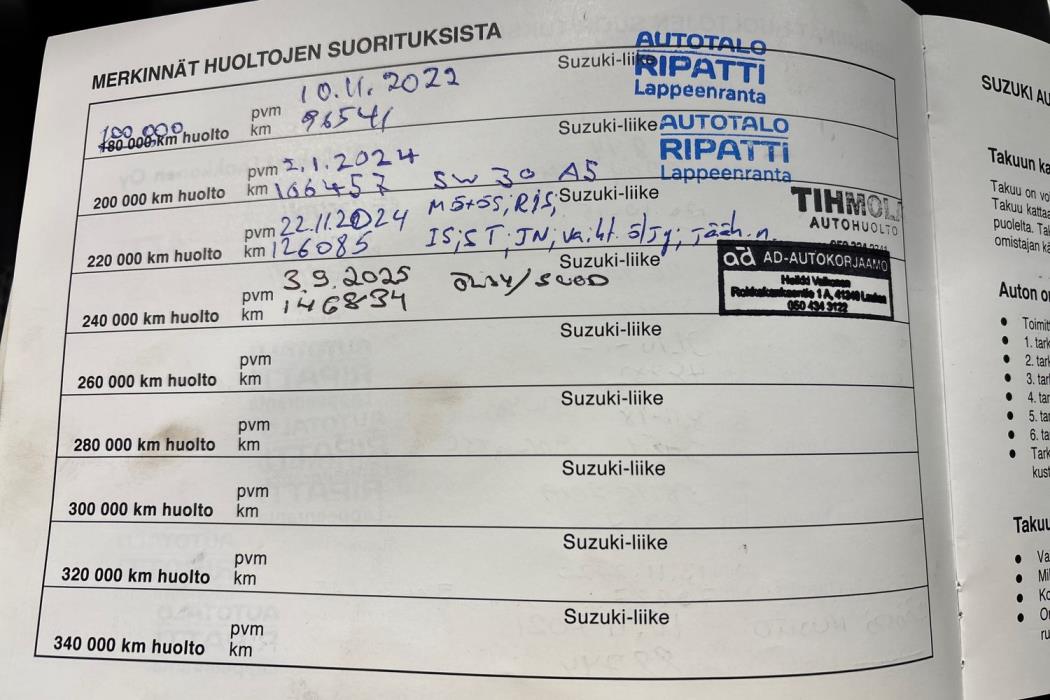 MERKINNÄT HUOLTOJEN SUORITUKSISTA
100 000
180 000 km huolto
pvm 10.11.2022
km 96541
Suzuki-liike
AUTOTALO
RIPATTI
Lappeenranta
200 000 km huolto
pvm 2.1.2024
km 106457
Suzuki-liike
AUTOTALO
RIPATTI
Lappeenranta
5W 30 A5
220 000 km huolto
pvm 22.11.2024
km 126085
Suzuki-liike
Mö+öS; RiS;
IS; ST; JN; vaiht. öljy; jääh.n.
TIHMOLI
AUTOHUOLTO
240 000 km huolto
pvm 3.9.2025
km 146834
Suzuki-liike
ÖLJY/SUOD
ad AD-AUTOKORJAAMO
Heikki
1 A, 41340
050 434 3122
260 000 km huolto
pvm
km
Suzuki-liike
280 000 km huolto
pvm
km
Suzuki-liike
300 000 km huolto
pvm
km
Suzuki-liike
320 000 km huolto
pvm
km
Suzuki-liike
340 000 km huolto
pvm
km
Suzuki-liike
SUZUKI AU
Takuun ka
Takuu on vo
Takuu kattaa
puolelta. Tal
omistajan kä
Auton or
Toimitt
1. tark
2. tar
3. tar
4. tar
5. tar
6. ta
Tark
kust
Takuu
Va
Mi
Ko
O
ru